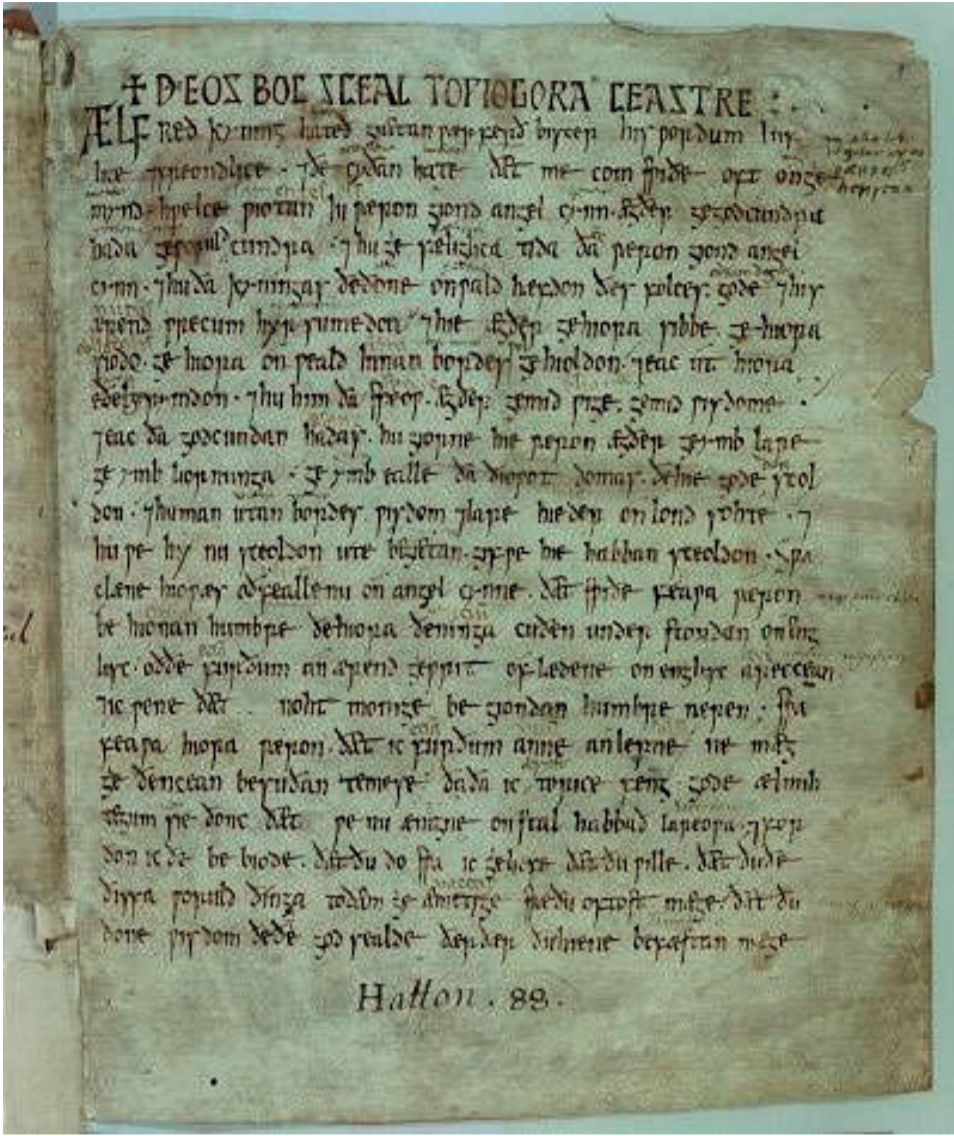 ✝ ÐEOS BOC SCEAL TO ǷIOGORA CEASTRE
ÆLFRED kyning hateð gretan ƿærferð biscep his ƿordum luf
lice ⁊ freondlice · ⁊ ðe cyðan hate ðæt me com suiðe oft on ge
mynd · hƿelce ƿiotan iu ƿæron giond angel cynn · ægðer ge godcundra
hada ge ƿoruld cundra · ⁊ hu gesæliglica tida ða ƿæron giond angel
cynn · ⁊ hu ða kyningas ðe ðone onƿald hæfdon ðæs folces · gode ⁊ his
ærend ƿrecum hyrsumedon ⁊ hie ægðer ge hiora sibbe · ge hiora
siodo · ge hiora onƿeald innan bordes gehioldon · ⁊ eac ut hiora
eðel rymdon · ⁊ hu him ða speoƿ · ægðer ge mid ƿige · ge mid ƿisdome ·
⁊ eac ða godcundan hadas · hu giorne hie ƿæron ægðer ge ymb lare
ge ymb liornunga · ge ymb ealle ða ðioƿot domas · ðe hie gode scol
don · ⁊ hu man utan bordes ƿisdom ⁊ lare hieder on lond sohte · ⁊
hu ƿe hy nu sceoldon ute begietan · gif ƿe hie habban sceoldon · sƿa
clæne hio ƿæs oðfeallenu on angel cynne · ðæt suiðe feaƿa ƿæron
be hionan humbre ðe hiora ðeninga cuðen understondan on eng
lisc · oððe furðum an ærend geƿrit of lædene on englisc areccean
⁊ ic ƿene ðæt noht monige be giondan humbre næren · sua
feaƿa hiora ƿæron · ðæt ic furðum anne anlepne ne mæg
geðencean besuðan temese ða ða ic to rice feng gode ælmih
tegum sie ðonc ðæt ƿe nu ænigne onstal habbað lareoƿa · ⁊ for
ðon ic ðe bebiode · ðæt ðu do sua ic geliefe ðæt ðu ƿille · ðæt ðu ðe
ðissa ƿoruld ðinga to ðæm geæmetige suæ ðu oftost mæge · ðæt ðu
ðone ƿisdom ðe ðe god sealde ðær ðær ðu hiene befæstan mæge
Hatton . 88 .